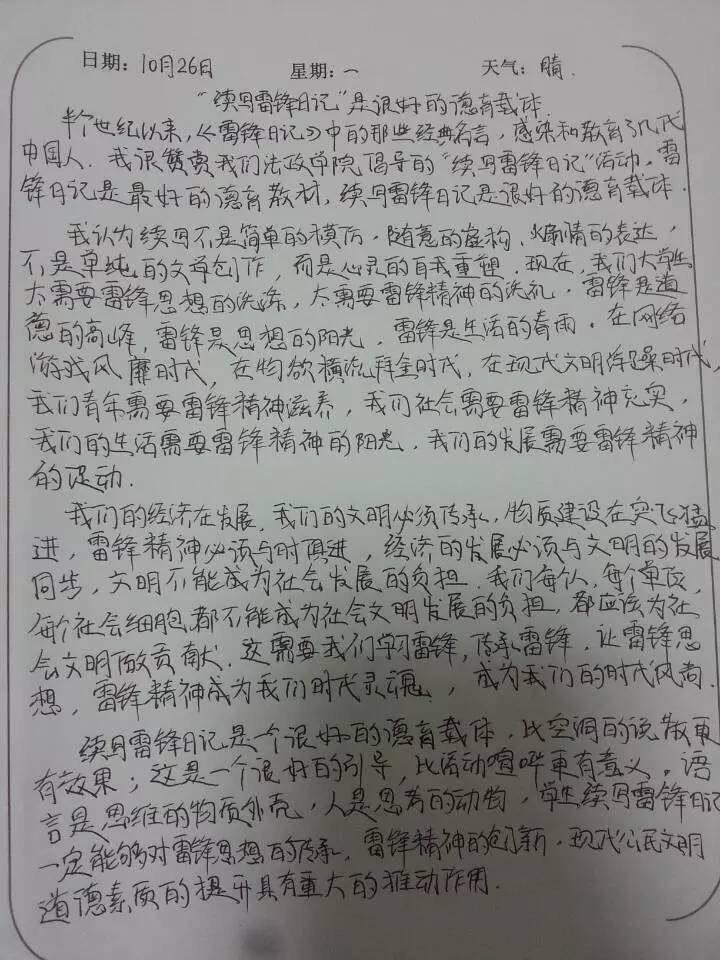 日期：10月26日 星期：一 天气：晴.
“续写雷锋日记”是很好的德育载体.
半个世纪以来，《雷锋日记》中的那些经典名言，感染和教育了几代
中国人. 我很赞赏我们法政学院倡导的“续写雷锋日记”活动，雷
锋日记是最好的德育教材，续写雷锋日记是很好的德育载体.
我认为续写不是简单的模仿、随意的虚构、煽情的表达，
不是单纯的文学创作，而是心灵的自我重塑. 现在，我们大学生
太需要雷锋思想的洗涤，太需要雷锋精神的洗礼，雷锋是道
德的高峰，雷锋是思想的阳光，雷锋是生活的春雨。在网络
游戏风靡时代，在物欲横流拜金时代，在现代文明浮躁时代，
我们青年需要雷锋精神滋养，我们社会需要雷锋精神充实，
我们的生活需要雷锋精神的阳光，我们的发展需要雷锋精神
的促动.
我们的经济在发展，我们的文明必须传承，物质建设在突飞猛
进，雷锋精神必须与时俱进，经济的发展必须与文明的发展
同步，文明不能成为社会发展的负担. 我们每个人，每个单位，
每个社会细胞都不能成为社会文明发展的负担，都应该为社
会文明做贡献. 这需要我们学习雷锋，传承雷锋，让雷锋思
想，雷锋精神成为我们时代灵魂，成为我们的时代风尚.
续写雷锋日记是一个很好的德育载体，比空洞的说教更
有效果；这是一个很好的引导，比活动喧哗更有意义。语
言是思维的物质外壳，人是思考的动物，学生续写雷锋日记
一定能够对雷锋思想的传承，雷锋精神的创新，现代公民文明
道德素质的提升具有重大的推动作用.